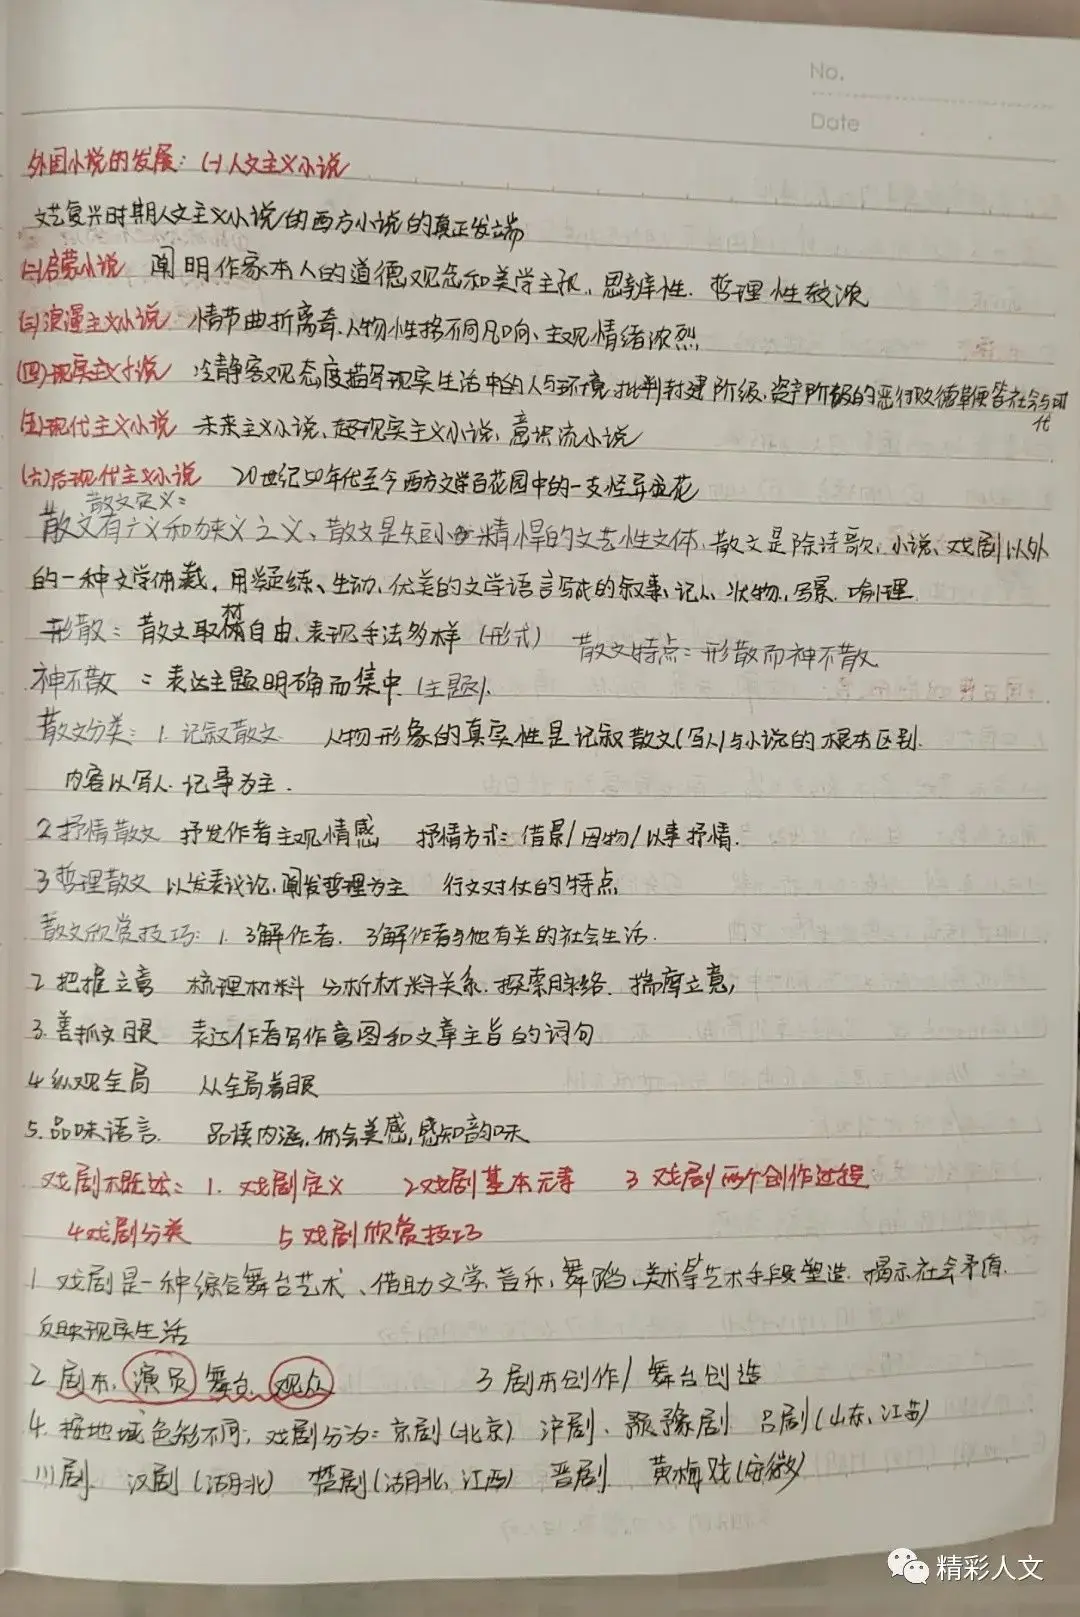 No.
Date
外国小说的发展：(一)人文主义小说
文艺复兴时期人文主义小说的西方小说的真正发端
(二)启蒙小说 阐明作家本人的道德观念和美学主张，思辨性、哲理性较浓
(三)浪漫主义小说 情节曲折离奇、人物性格不同凡响、主观情绪浓烈
(四)现实主义小说 冷静客观态度描写现实生活中的人与环境，批判封建阶级、资产阶级的恶行败德鞭笞社会与时代
(五)现代主义小说 未来主义小说、超现实主义小说、意识流小说
(六)后现代主义小说 20世纪50年代至今西方文学百花园中的一支怪异
散文定义：
散文有广义和狭义之义、散文是短小精悍的文艺性文体，散文是除诗歌、小说、戏剧以外
的一种文学体裁，用凝练、生动、优美的文学语言写成的叙事、记人、状物、写景、喻理
形散：散文取材自由、表现手法多样（形式） 散文特点：形散而神不散
神不散：表达主题明确而集中（主题）
散文分类：1.记叙散文 人物形象的真实性是记叙散文(写人)与小说的根本区别
内容以写人、记事为主.
2抒情散文 抒发作者主观情感 抒情方式：借景/因物/以事抒情.
3哲理散文 以发表议论、阐发哲理为主 行文对仗的特点
散文欣赏技巧：1.了解作者、了解作者与他有关的社会生活.
2把握立意 梳理材料 分析材料关系、探索脉络、揣摩立意,
3.善抓文眼 表达作者写作意图和文章主旨的词句
4纵观全局 从全局着眼
5.品味语言 品读内涵，体会美感，感知韵味
戏剧概述：1.戏剧定义 2戏剧基本元素 3戏剧两个创作过程
4戏剧分类 5戏剧欣赏技巧
1.戏剧是一种综合舞台艺术、借助文学、音乐、舞蹈、美术等艺术手段塑造、揭示社会矛盾、
反映现实生活
2剧本、演员 舞台、观众 3剧本创作/舞台创造
4.按地域色彩不同，戏剧分为：京剧(北京) 沪剧、豫剧 吕剧(山东、江苏)
川剧 汉剧(湖北) 楚剧(湖北、江西) 晋剧 黄梅戏(安徽)
精彩人文